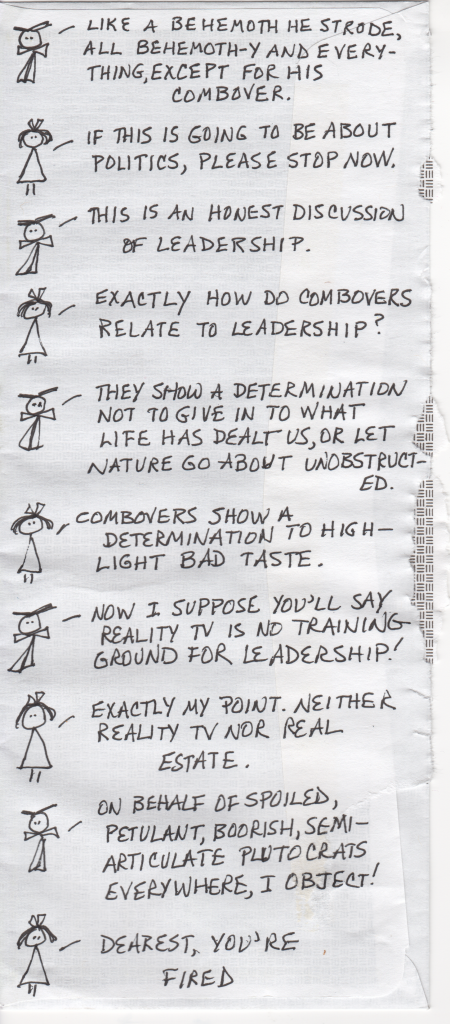 LIKE A BEHEMOTH HE STRODE,
ALL BEHEMOTH-Y AND EVERY-
THING, EXCEPT FOR HIS
COMBOVER.
IF THIS IS GOING TO BE ABOUT
POLITICS, PLEASE STOP NOW.
THIS IS AN HONEST DISCUSSION
OF LEADERSHIP.
EXACTLY HOW DO COMBOVERS
RELATE TO LEADERSHIP?
THEY SHOW A DETERMINATION
NOT TO GIVE IN TO WHAT
LIFE HAS DEALT US, OR LET
NATURE GO ABOUT UNOBSTRUCT-
ED.
COMBOVERS SHOW A
DETERMINATION TO HIGH-
LIGHT BAD TASTE.
NOW I SUPPOSE YOU'LL SAY
REALITY TV IS NO TRAINING
GROUND FOR LEADERSHIP!
EXACTLY MY POINT. NEITHER
REALITY TV NOR REAL
ESTATE.
ON BEHALF OF SPOILED,
PETULANT, BOORISH, SEMI-
ARTICULATE PLUTOCRATS
EVERYWHERE, I OBJECT!
DEAREST, YOU'RE
FIRED